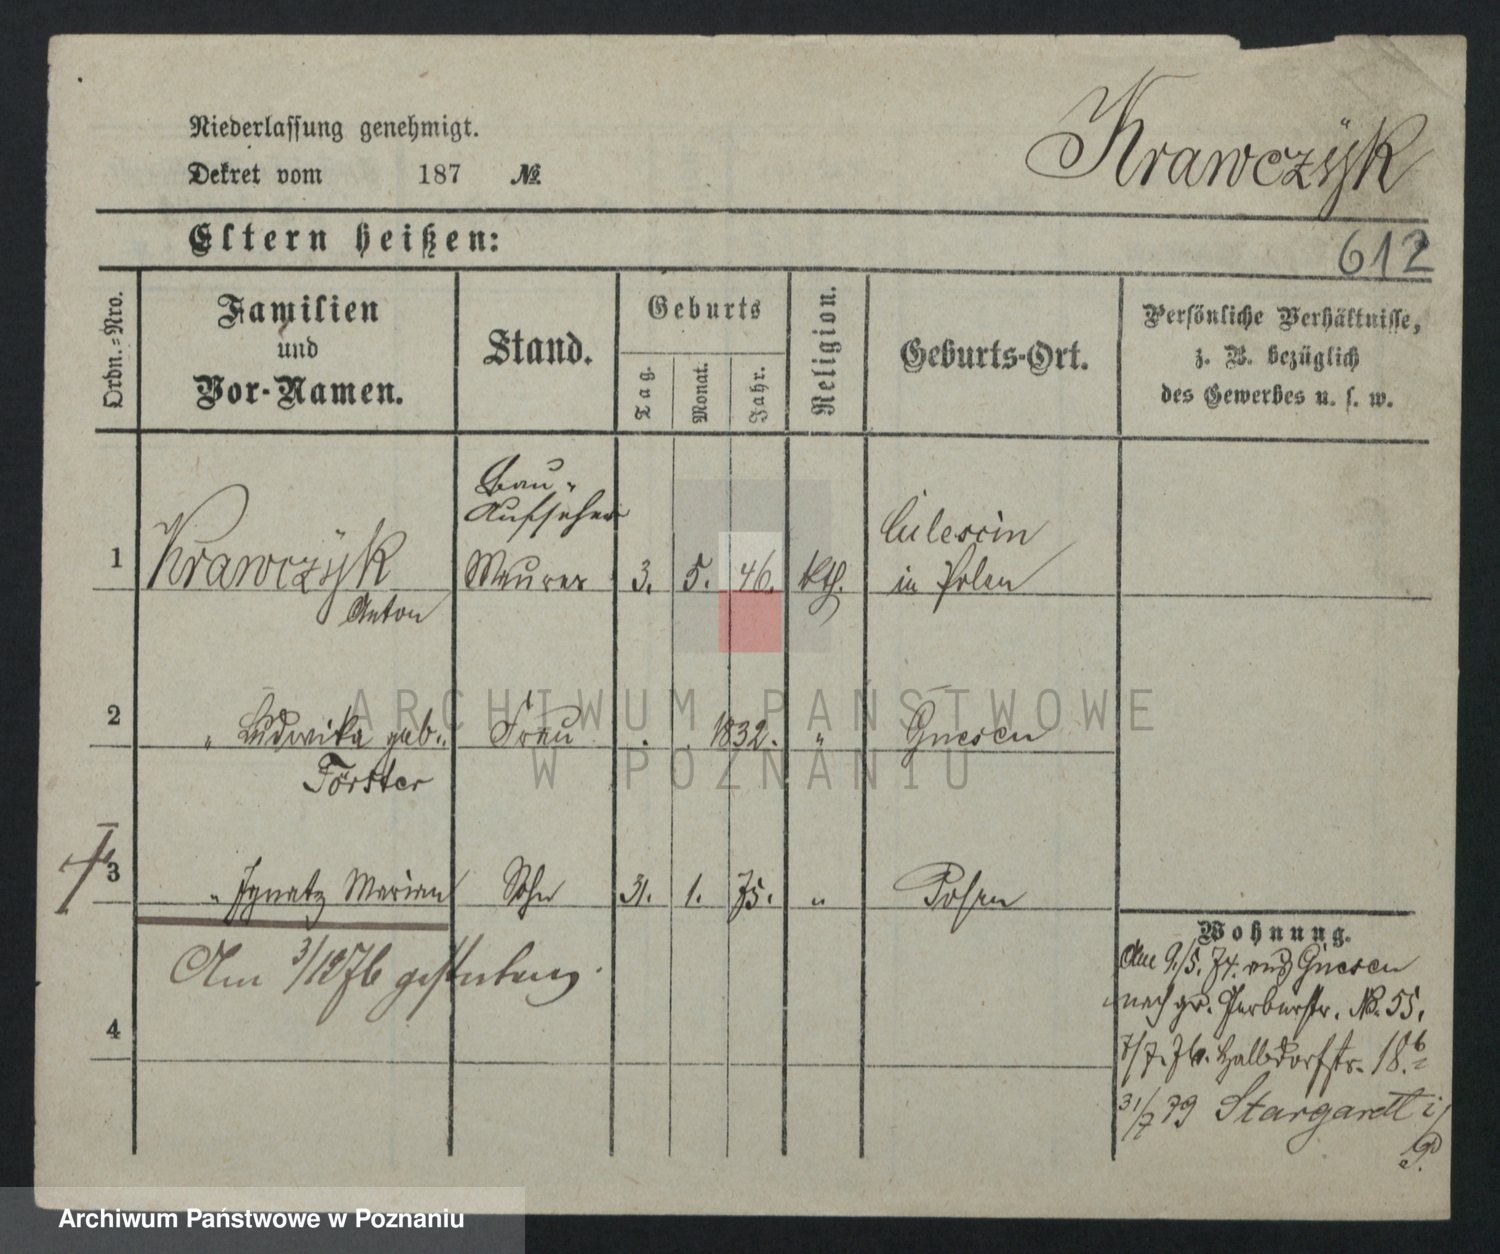 Niederlassung genehmigt.
Dekret vom 187 №
Krawczÿk
Eltern heißen:
612
Ordn.-Nro.
Familien
und
Vor-Namen.
Stand.
Geburts
Tag.
Monat.
Jahr.
Religion.
Geburts-Ort.
Persönliche Verhältnisse,
z. B. bezüglich
des Gewerbes u. s. w.
Bau-
Aufseher
1 Krawczÿk Maurer 3. 5. 46. kth.
Anton
in Polen
2 " Ludwika geb. Frau 1832. " Gnesen
Förster
3 " Ignatz Marian Sohn 31. 1. 75. " Posen
Am 3/12 76 gestorben.
4
Wohnung.
Am 9/5. 74. aus Gnesen
nach gr. Gerberstr. No. 55.
7/7. 76. Halbdorfstr. 18.b
31/7 79 Stargardt i/
P.
ARCHIWUM PAŃSTWOWE
W POZNANIU
Archiwum Państwowe w Poznaniu